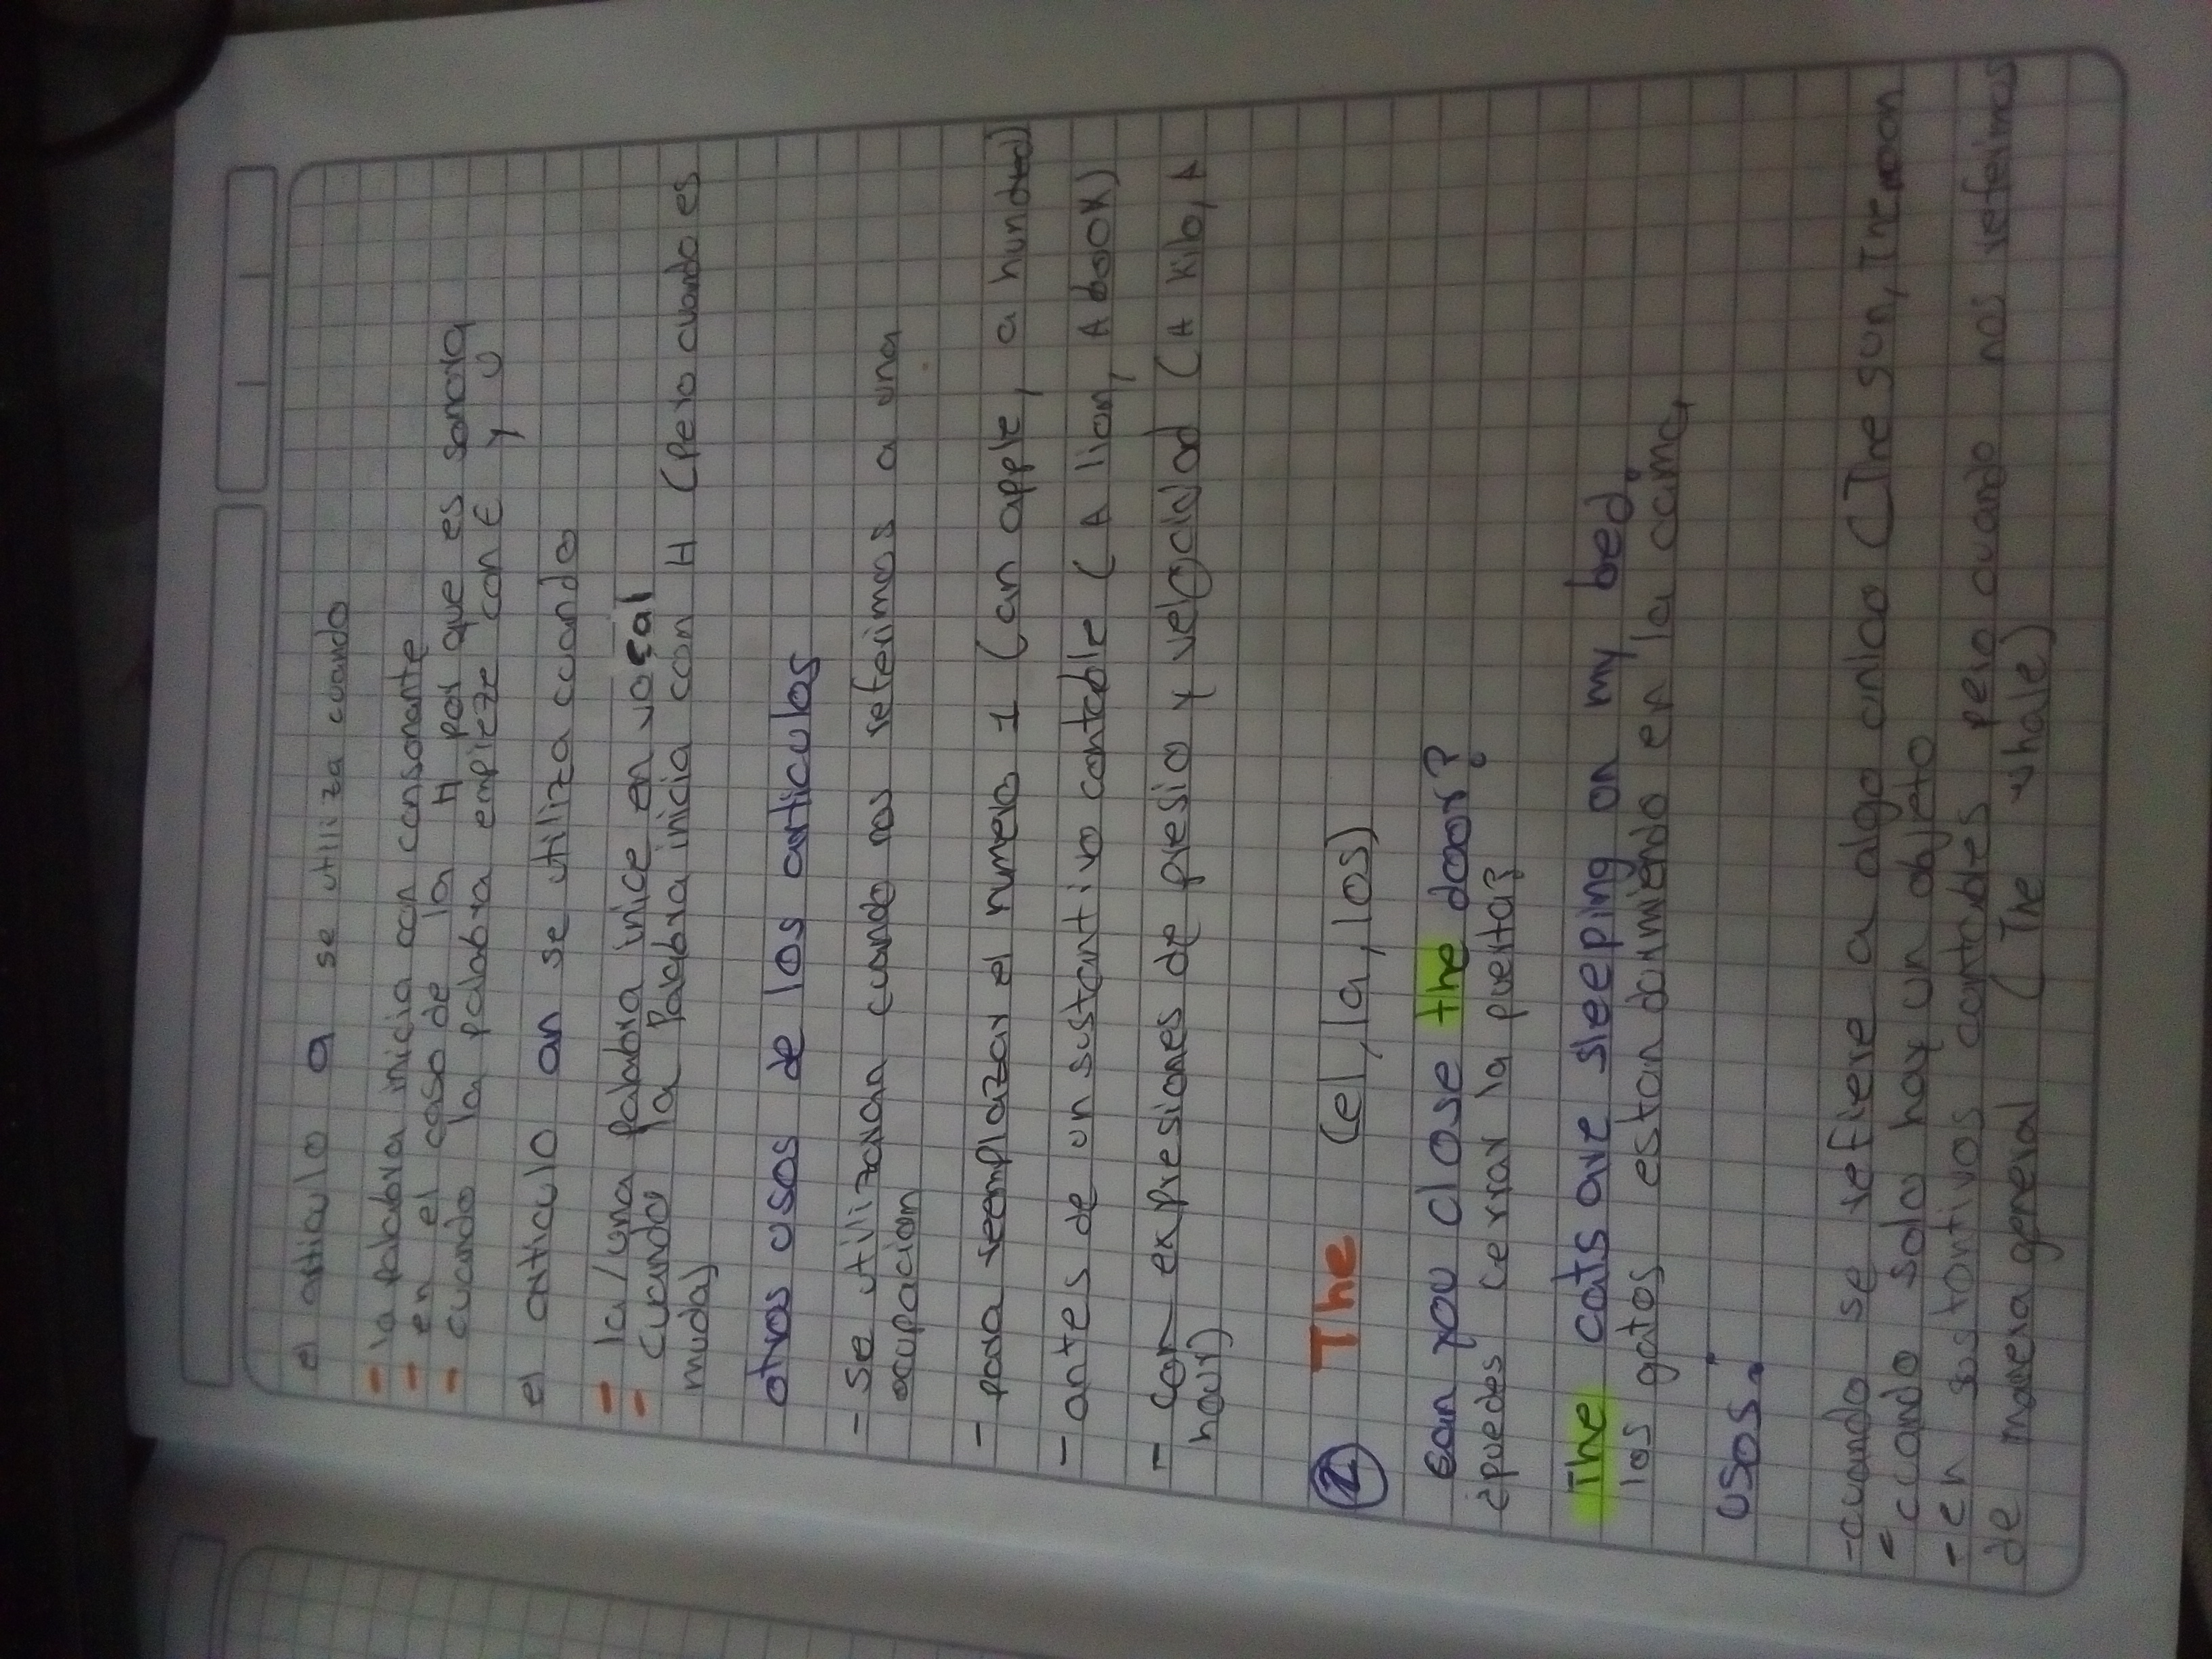 el articulo a se utiliza cuando
- la palabra inicia con consonante
- en el caso de la H por que es sonora
- cuando la palabra empieze con E y U
el articulo an se utiliza cuando
- la/una palabra inice en vocal
- cuando la Palabra inicia con H (Pero cuando es
muda)
otros usos de los articulos
- se utilizara cuando nos referimos a una
ocupacion
- para reemplazar el numero 1 (an apple, a hundred)
- antes de un sustantivo contable (A lion, A book)
- con expresiones de presio y velocidad (A kilo, A
hour)
2 The (el, la, los)
can you close the door?
¿puedes cerrar la puerta?
The cats are sleeping on my bed.
los gatos estan dormiendo en la cama
usos:
- cuando se refiere a algo unico (The sun, The moon
- cuando solo hay un objeto
- en sustantivos contables pero cuando nos referimos
de manera general (The whale)